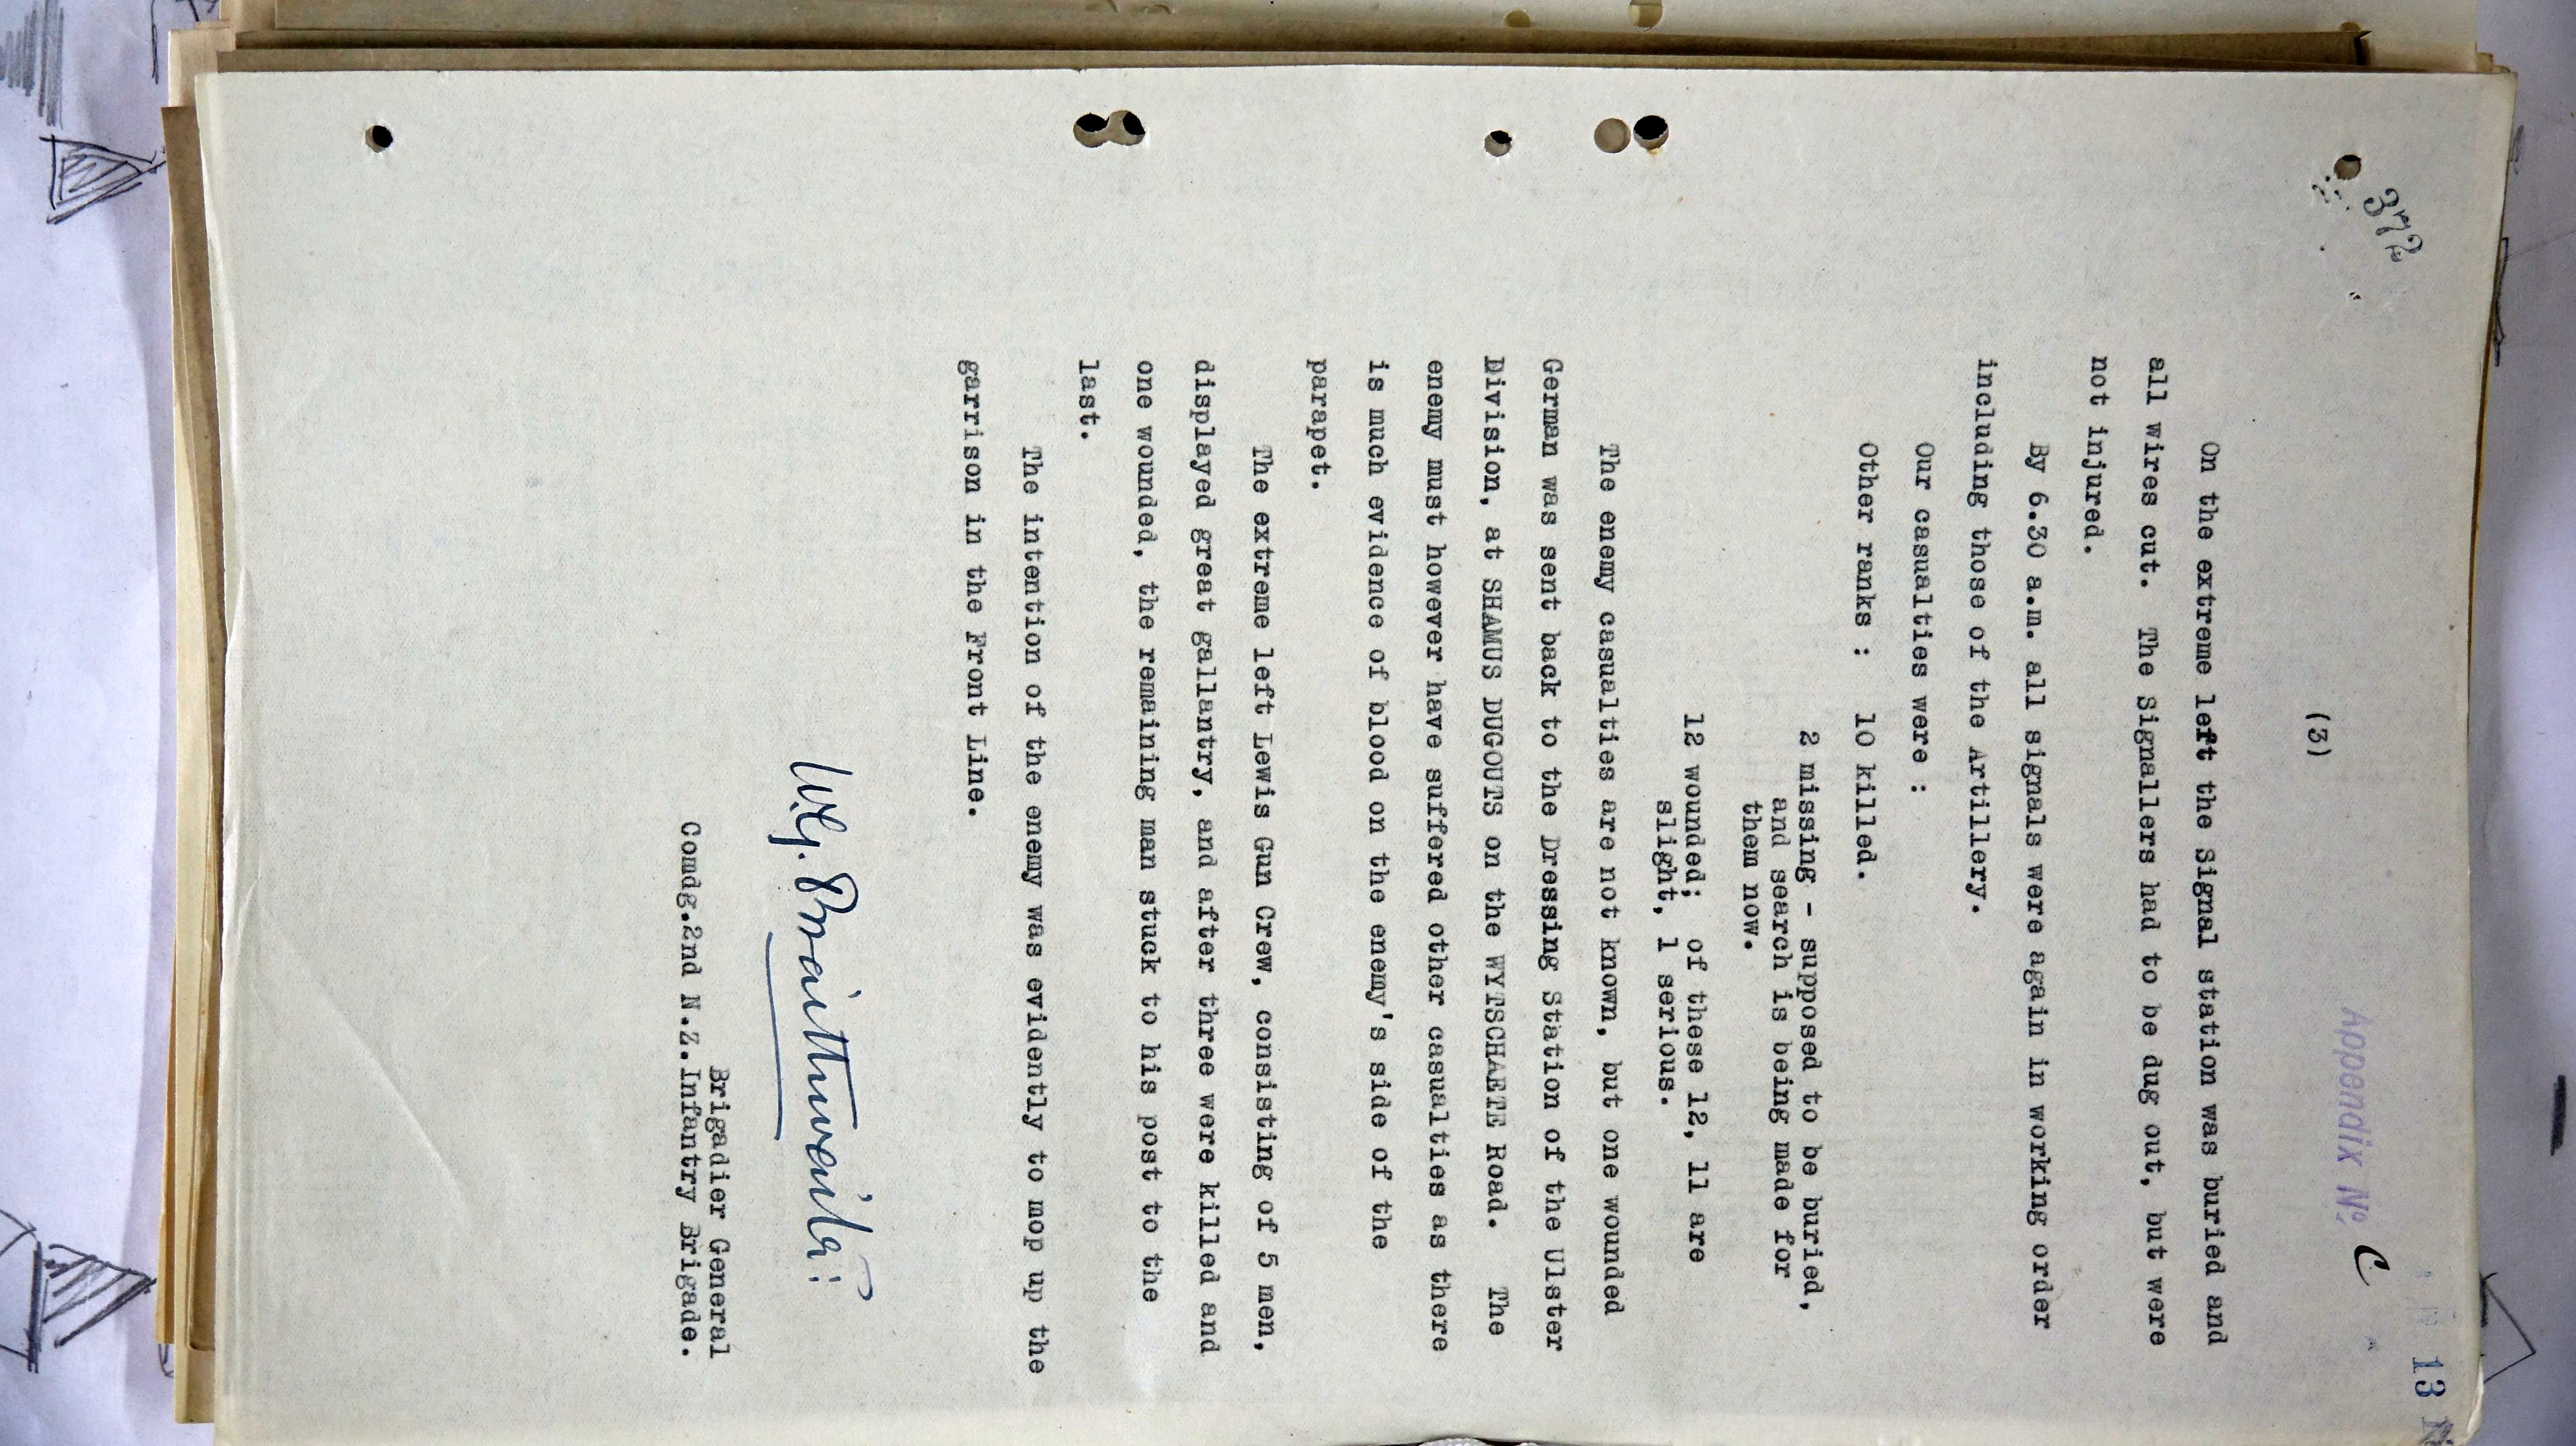 372
Appendix No. C
13
(3)
On the extreme left the Signal station was buried and
all wires cut. The Signallers had to be dug out, but were
not injured.
By 6.30 a.m. all signals were again in working order
including those of the Artillery.
Our casualties were :
Other ranks : 10 killed.
2 missing - supposed to be buried,
and search is being made for
them now.
12 wounded; of these 12, 11 are
slight, 1 serious.
The enemy casualties are not known, but one wounded
German was sent back to the Dressing Station of the Ulster
Division, at SHAMUS DUGOUTS on the WYTSCHAETE Road. The
enemy must however have suffered other casualties as there
is much evidence of blood on the enemy's side of the
parapet.
The extreme left Lewis Gun Crew, consisting of 5 men,
displayed great gallantry, and after three were killed and
one wounded, the remaining man stuck to his post to the
last.
The intention of the enemy was evidently to mop up the
garrison in the Front Line.
W.G. Braithwaite
Brigadier General
Comdg.2nd N.Z.Infantry Brigade.